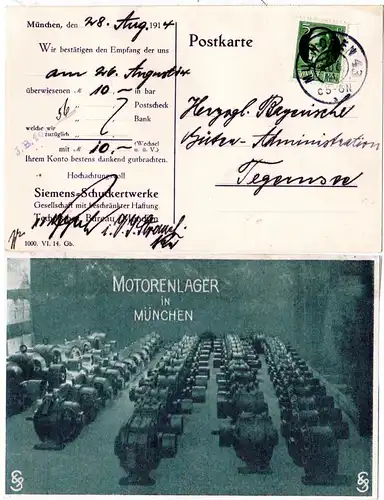 München, den 28. Aug. 1914
Postkarte
Wir bestätigen den Empfang der uns
am 26. August
überwiesenen M 10.- in bar
Postscheck
Bank
welche wir
zuzüglich
mit 10.- (Wechsel
u. ö. V.)
Ihrem Konto bestens dankend gutbrachten.
Hochachtungsvoll
Siemens-Schuckertwerke
Gesellschaft mit beschränkter Haftung
Technisches Bureau München
1000. VI. 14. Gb.
Herzogl. Bayerische
Güter-Administration
Tegernsee
MOTORENLAGER
IN
MÜNCHEN